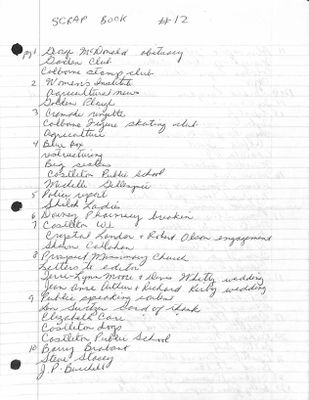 SCRAP BOOK #12
pg 1 George McDonald obituary
Garden Club
Colborne stamp club
2 Women's Institute
Agricultural news
Golden Plough
3 Cramahe ringette
Colborne Figure skating club
Agriculture
4 Blue Box
restructuring
Big sisters
Castleton Public School
Michelle
5 Police report
Shiloh Ladies
6 Downey Pharmacy breakin
7 Castleton WI
Crystal London & Robert Olson engagement
Sharon Callahan
8 Prospect Missionary Church
Letters to editor
Terri-Lynn Moore & Denis Whitty wedding
Jean Anne & Richard Kirby wedding
9 Public speaking contest
Card of thank
Elizabeth Carr
Castleton dogs
Castleton Public School
10 Barry Brabant
Steve Stacey
J P Burchell